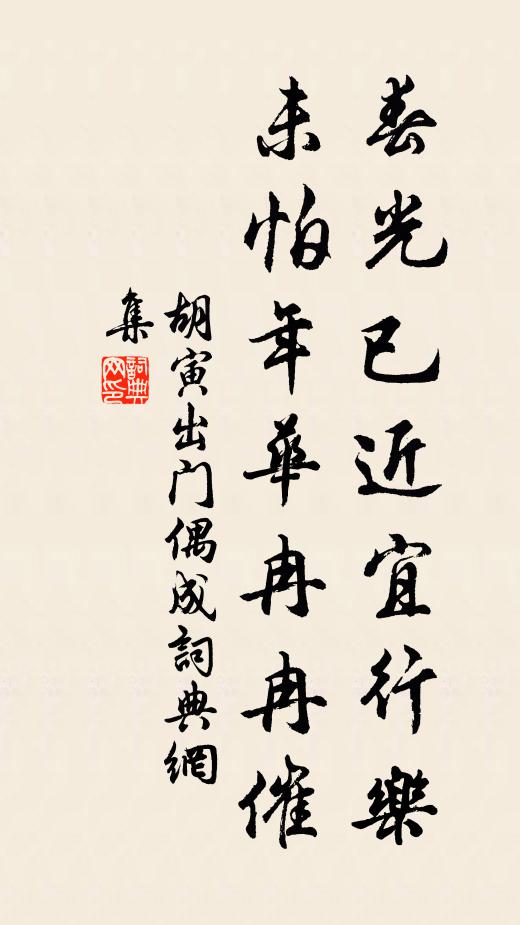 春光已近宜行樂
未怕年華冉冉催
胡寅出门偶成詞典網
集
詞典
网印